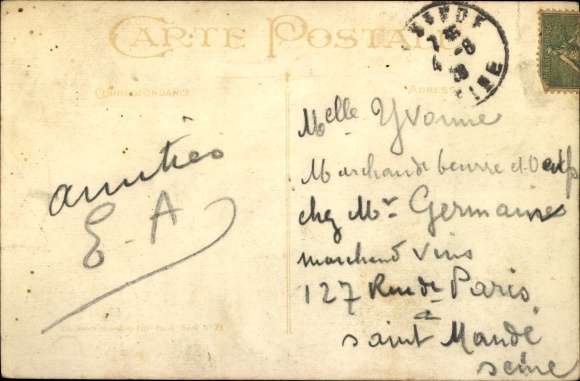 CARTE POSTALE
CORRESPONDANCE
ADRESSE
amitiés
E. A
Melle Yvonne
Marchande beurre et Oeufs
chez Mr Germaines
marchand vins
127 Rue de Paris
a
Saint Mandé
Seine